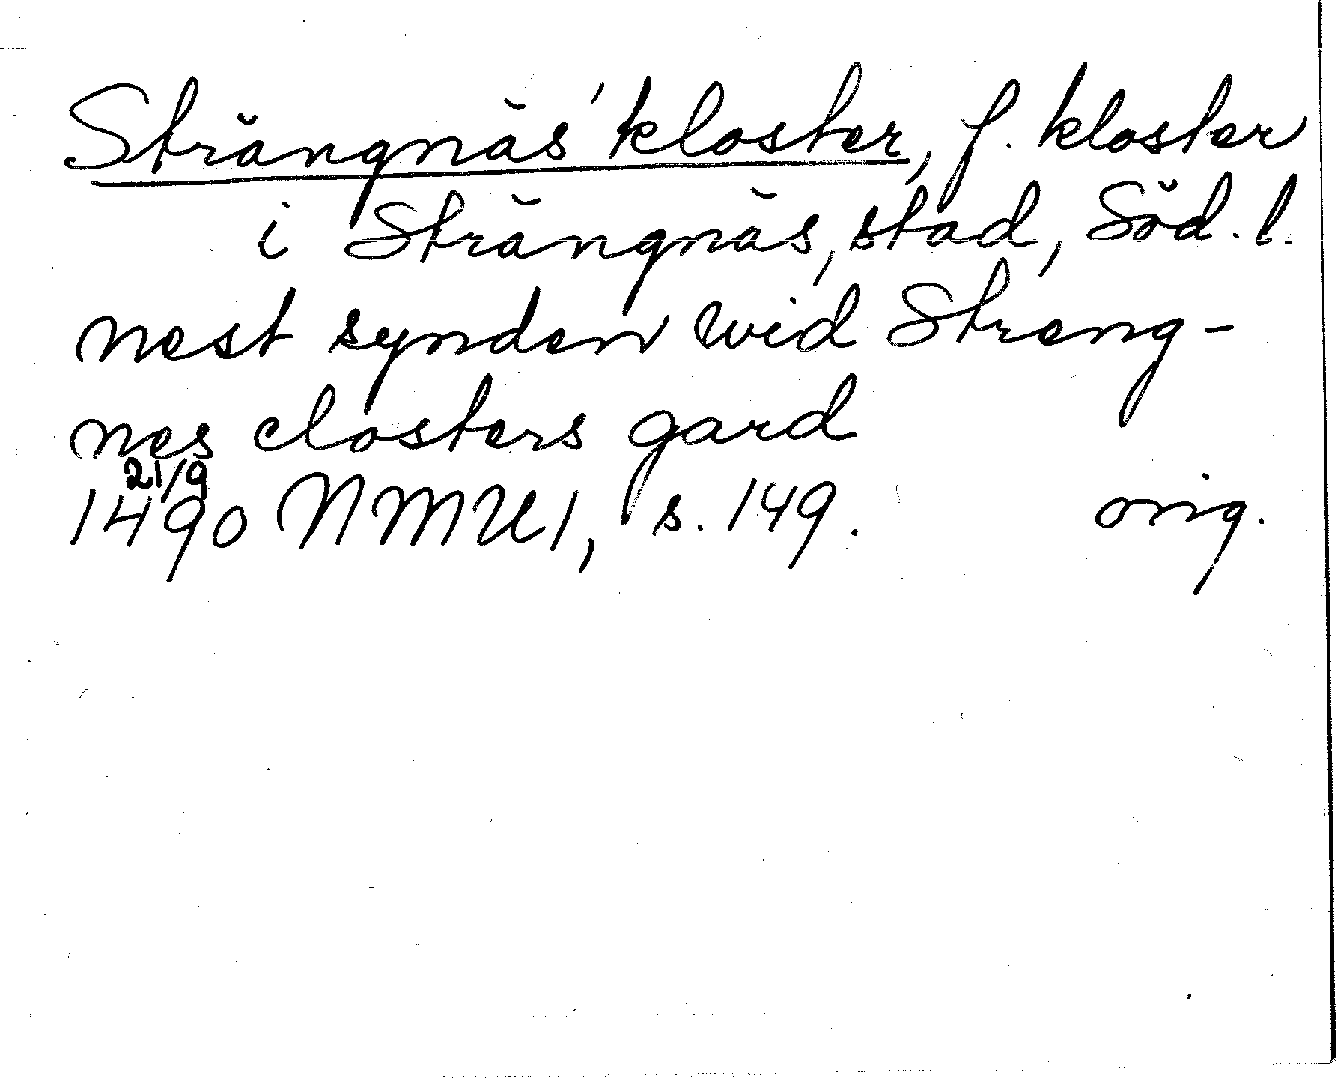 Strängnäs' kloster, f. kloster
i Strängnäs, stad, Söd. l.
nest synden wid Streng-
nes closters gard
21/9
1490 NMU 1, s. 149. orig.